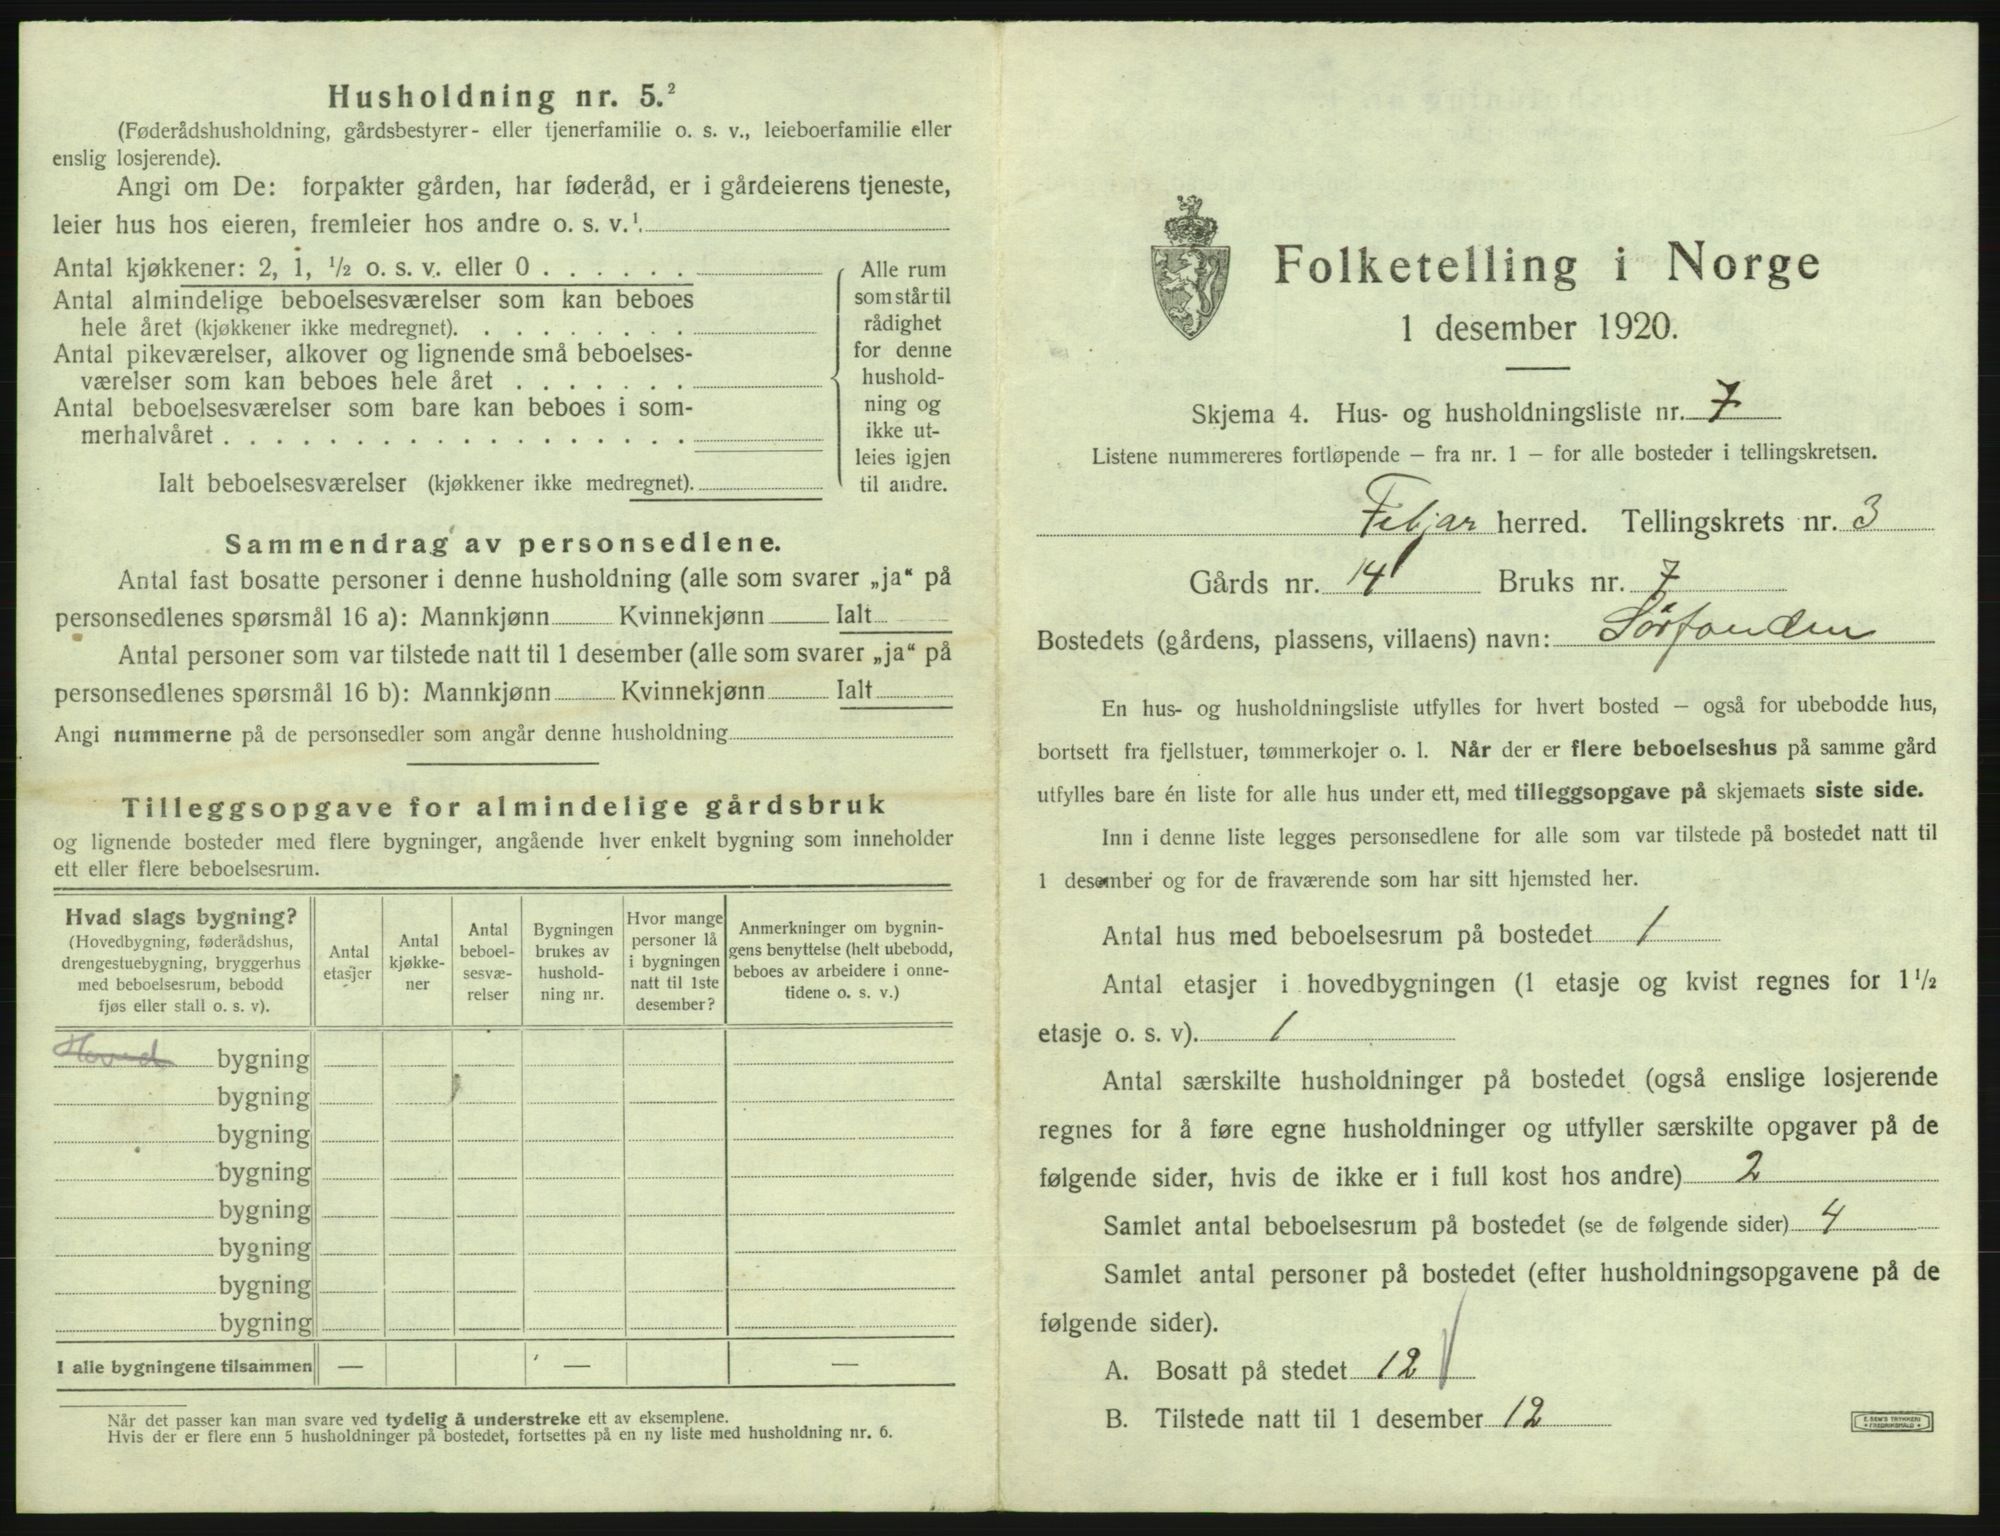 Husholdning nr. 5.²
(Føderådshusholdning, gårdsbestyrer- eller tjenerfamilie o. s. v., leieboerfamilie eller
enslig losjerende).
Angi om De: forpakter gården, har føderåd, er i gårdeierens tjeneste,
leier hus hos eieren, fremleier hos andre o. s. v.¹.
Antal kjøkkener: 2, 1, ½ o. s. v. eller 0 . . . . . .
Antal almindelige beboelsesværelser som kan beboes
hele året (kjøkkener ikke medregnet). . . . . . . . .
Antal pikeværelser, alkover og lignende små beboelses-
værelser som kan beboes hele året . . . . . . .
Antal beboelsesværelser som bare kan beboes i som-
merhalvåret . . . . . . . . . . . . . . . . . .
Ialt beboelsesværelser (kjøkkener ikke medregnet).
Alle rum
som står til
rådighet
for denne
hushold-
ning og
ikke ut-
leies igjen
til andre.
Sammendrag av personsedlene.
Antal fast bosatte personer i denne husholdning (alle som svarer „ja“ på
personsedlenes spørsmål 16 a): Mannkjønn Kvinnekjønn Ialt
Antal personer som var tilstede natt til 1 desember (alle som svarer „ja“ på
personsedlenes spørsmål 16 b): Mannkjønn Kvinnekjønn Ialt
Angi nummerne på de personsedler som angår denne husholdning
Tilleggsopgave for almindelige gårdsbruk
og lignende bosteder med flere bygninger, angående hver enkelt bygning som inneholder
ett eller flere beboelsesrum.
Hvad slags bygning?
(Hovedbygning, føderådshus,
drengestuebygning, bryggerhus
med beboelsesrum, bebodd
fjøs eller stall o. s. v).
Antal
etasjer
Antal
kjøkke-
ner
Antal
beboel-
sesvæ-
relser
Bygningen
brukes av
hushold-
ning nr.
Hvor mange
personer lå
i bygningen
natt til 1ste
desember?
Anmerkninger om bygnin-
gens benyttelse (helt ubebodd,
beboes av arbeidere i onne-
tidene o. s. v.)
Hoved bygning
bygning
bygning
bygning
bygning
bygning
bygning
bygning
I alle bygningene tilsammen — — —
Når det passer kan man svare ved tydelig å understreke ett av eksemplene.
Hvis der er flere enn 5 husholdninger på bostedet, fortsettes på en ny liste med husholdning nr. 6.
Folketelling i Norge
1 desember 1920.
Skjema 4. Hus- og husholdningsliste nr. 7
Listene nummereres fortløpende — fra nr. 1 — for alle bosteder i tellingskretsen.
Fitjar herred. Tellingskrets nr. 3
Gårds nr. 14 Bruks nr. 7
Bostedets (gårdens, plassens, villaens) navn: Sørfonden
En hus- og husholdningsliste utfylles for hvert bosted — også for ubebodde hus,
bortsett fra fjellstuer, tømmerkojer o. l. Når der er flere beboelseshus på samme gård
utfylles bare én liste for alle hus under ett, med tilleggsopgave på skjemaets siste side.
Inn i denne liste legges personsedlene for alle som var tilstede på bostedet natt til
1 desember og for de fraværende som har sitt hjemsted her.
Antal hus med beboelsesrum på bostedet 1
Antal etasjer i hovedbygningen (1 etasje og kvist regnes for 1½
etasje o. s. v). 1
Antal særskilte husholdninger på bostedet (også enslige losjerende
regnes for å føre egne husholdninger og utfyller særskilte opgaver på de
følgende sider, hvis de ikke er i full kost hos andre) 2
Samlet antal beboelsesrum på bostedet (se de følgende sider) 4
Samlet antal personer på bostedet (efter husholdningsopgavene på de
følgende sider).
A. Bosatt på stedet 12
B. Tilstede natt til 1 desember 12
E. SEM'S TRYKKERI
FREDRIKSHALD